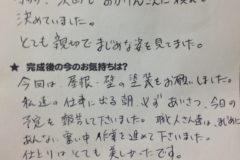 決めていました。
とても親切でまじめな姿を見ました。
★ 完成後の今のお気持ちは?
今回は、屋根・壁の塗装をお願いしました。
私達の仕事に出る朝、必ずあいさつ、今日の
予定を報告して下さいました。職人さん達は、まじめに
あんない寒い中作業を進めて下さいました。
仕上りはとても美しかったです。